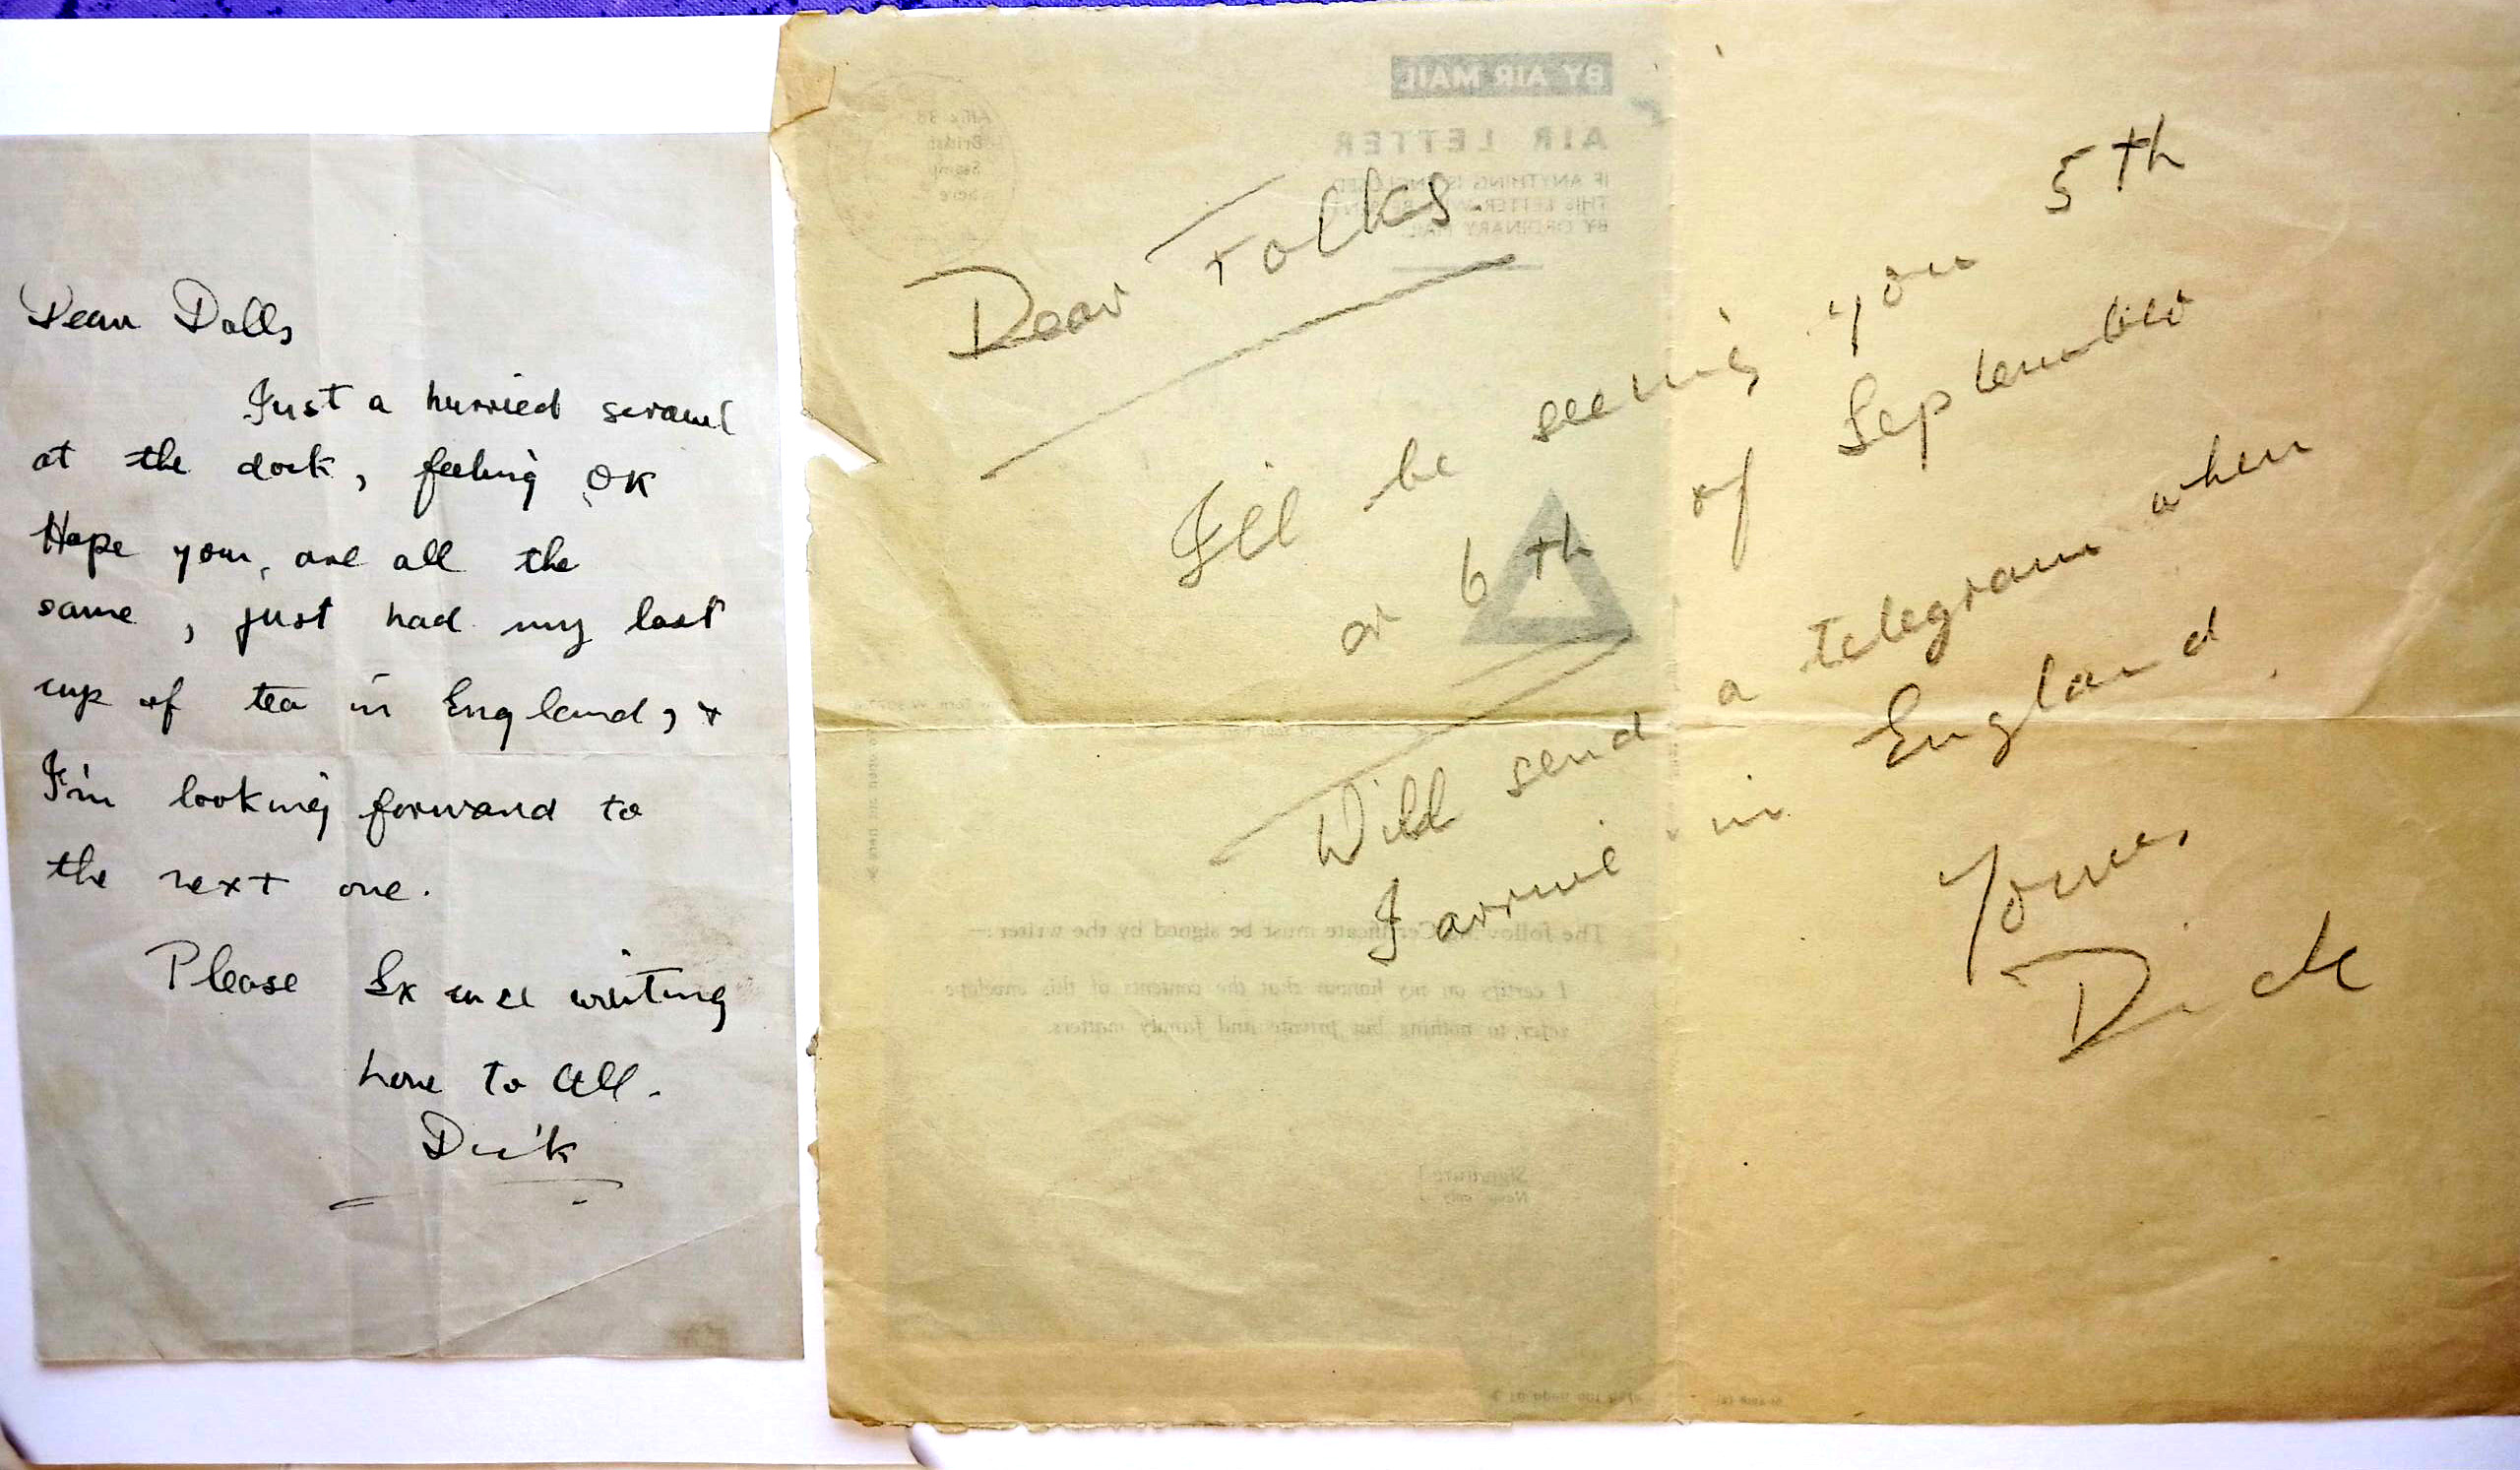 Dear Dolls
Just a hurried scrawl
at the dock, feeling OK
Hope you, are all the
same, just had my last
cup of tea in England, &
I'm looking forward to
the next one.
Please Excuse writing
Love to All.
Dick
Dear Folks
I'll be seeing you 5th
or 6th of September
Will send a telegram when
I arrive in England
Yours,
Dick
BY AIR MAIL
AIR LETTER
IF ANYTHING IS ENCLOSED
THIS LETTER WILL BE SENT
BY ORDINARY MAIL
Affix
Stamp
here
The following Certificate must be signed by the writer:—
I certify on my honour that the contents of this envelope
refer to nothing but private and family matters.
Signature
Name only